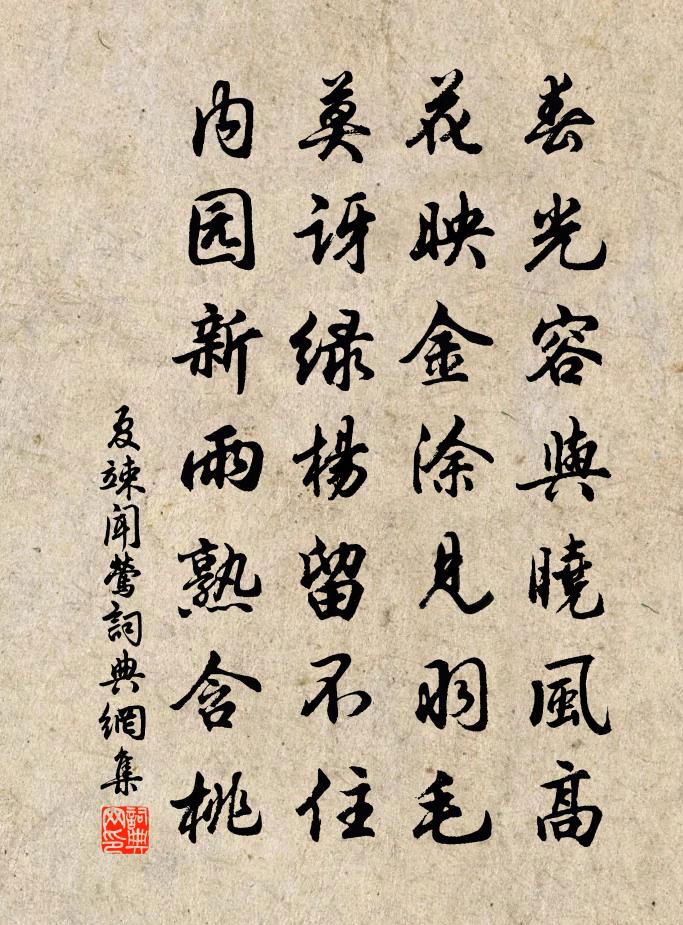 春光容與曉風高
花映金涂見羽毛
莫讶绿楊留不住
内园新雨熟含桃
夏竦聞鶯詞典網集
詞典网印